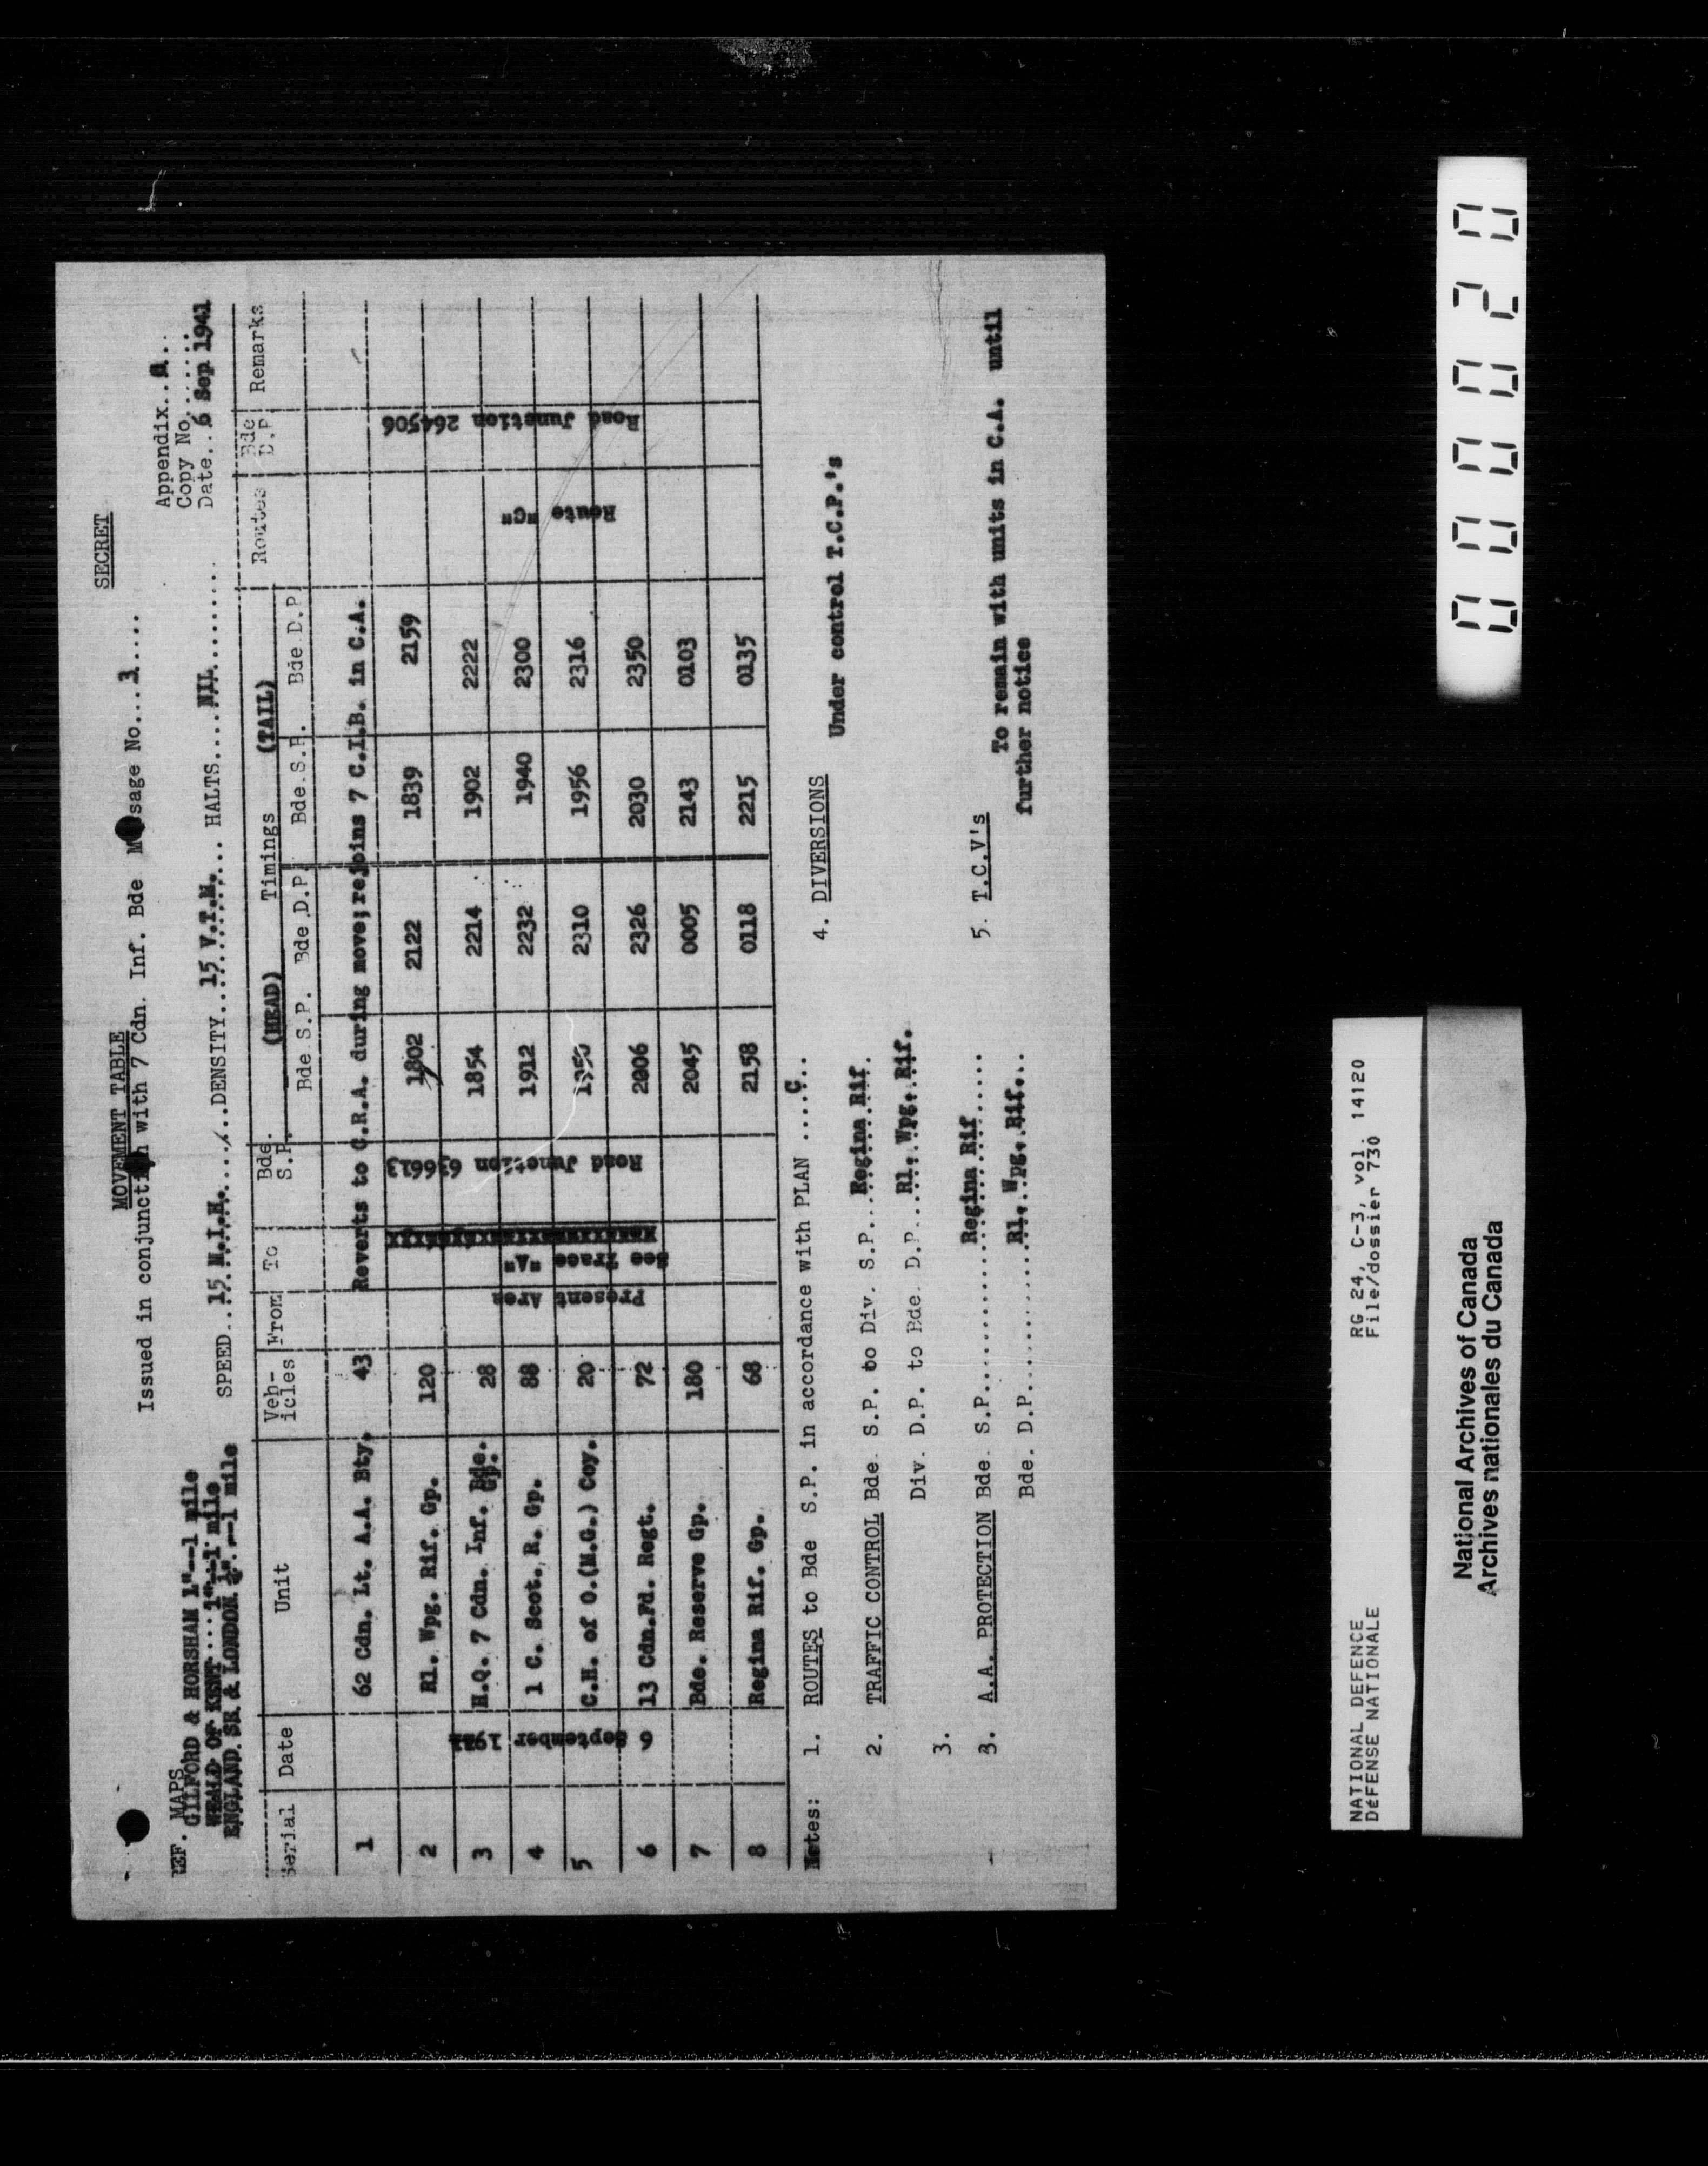 SECRET
MOVEMENT TABLE
Issued in conjunction with 7 Cdn. Inf. Bde Message No...3.....
Appendix..A..
Copy No.......
Date..6 Sep 1941
REF. MAPS
GILFORD & HORSHAM 1"--1 mile
WEALD OF KENT...1"--1 mile
ENGLAND. SR. & LONDON ¼".--1 mile
SPEED..15 M.I.H......DENSITY...15 V.T.M... HALTS....NIL........
Serial Date Unit Veh-icles From To Bde. S.P. (HEAD) Timings (TAIL) Routes Bde D.P. Remarks
Bde S.P. Bde.D.P. Bde.S.P. Bde.D.P.
1 62 Cdn. Lt. A.A. Bty. 43 Reverts to C.R.A. during move;rejoins 7 C.I.B. in C.A.
2 Rl. Wpg. Rif. Gp. 120 1802 2122 1839 2159
3 H.Q. 7 Cdn. Inf. Bde. Gp. 28 1854 2214 1902 2222
4 1 C. Scot. R. Gp. 88 1912 2232 1940 2300
5 C.H. of O.(M.G.) Coy. 20 1950 2310 1956 2316
6 13 Cdn.Fd. Regt. 72 2006 2326 2030 2350
7 Bde. Reserve Gp. 180 2045 0005 2143 0103
8 Regina Rif. Gp. 68 2158 0118 2215 0135
6 September 1941
Present Area
See Trace "A"
Road Junction 636613
Route "C"
Road Junction 264506
Notes: 1. ROUTES to Bde S.P. in accordance with PLAN ....C...
2. TRAFFIC CONTROL Bde. S.P. to Div. S.P...Regina Rif.
Div. D.P. to Bde. D.P....Rl. Wpg. Rif.
3.
3. A.A. PROTECTION Bde. S.P..........Regina Rif.....
Bde. D.P..........Rl. Wpg. Rif...
4. DIVERSIONS
Under control T.C.P.'s
5. T.C.V's
To remain with units in C.A. until
further notice
NATIONAL DEFENCE
DéFENSE NATIONALE
RG 24, C-3, vol. 14120
File/dossier 730
National Archives of Canada
Archives nationales du Canada
0000020